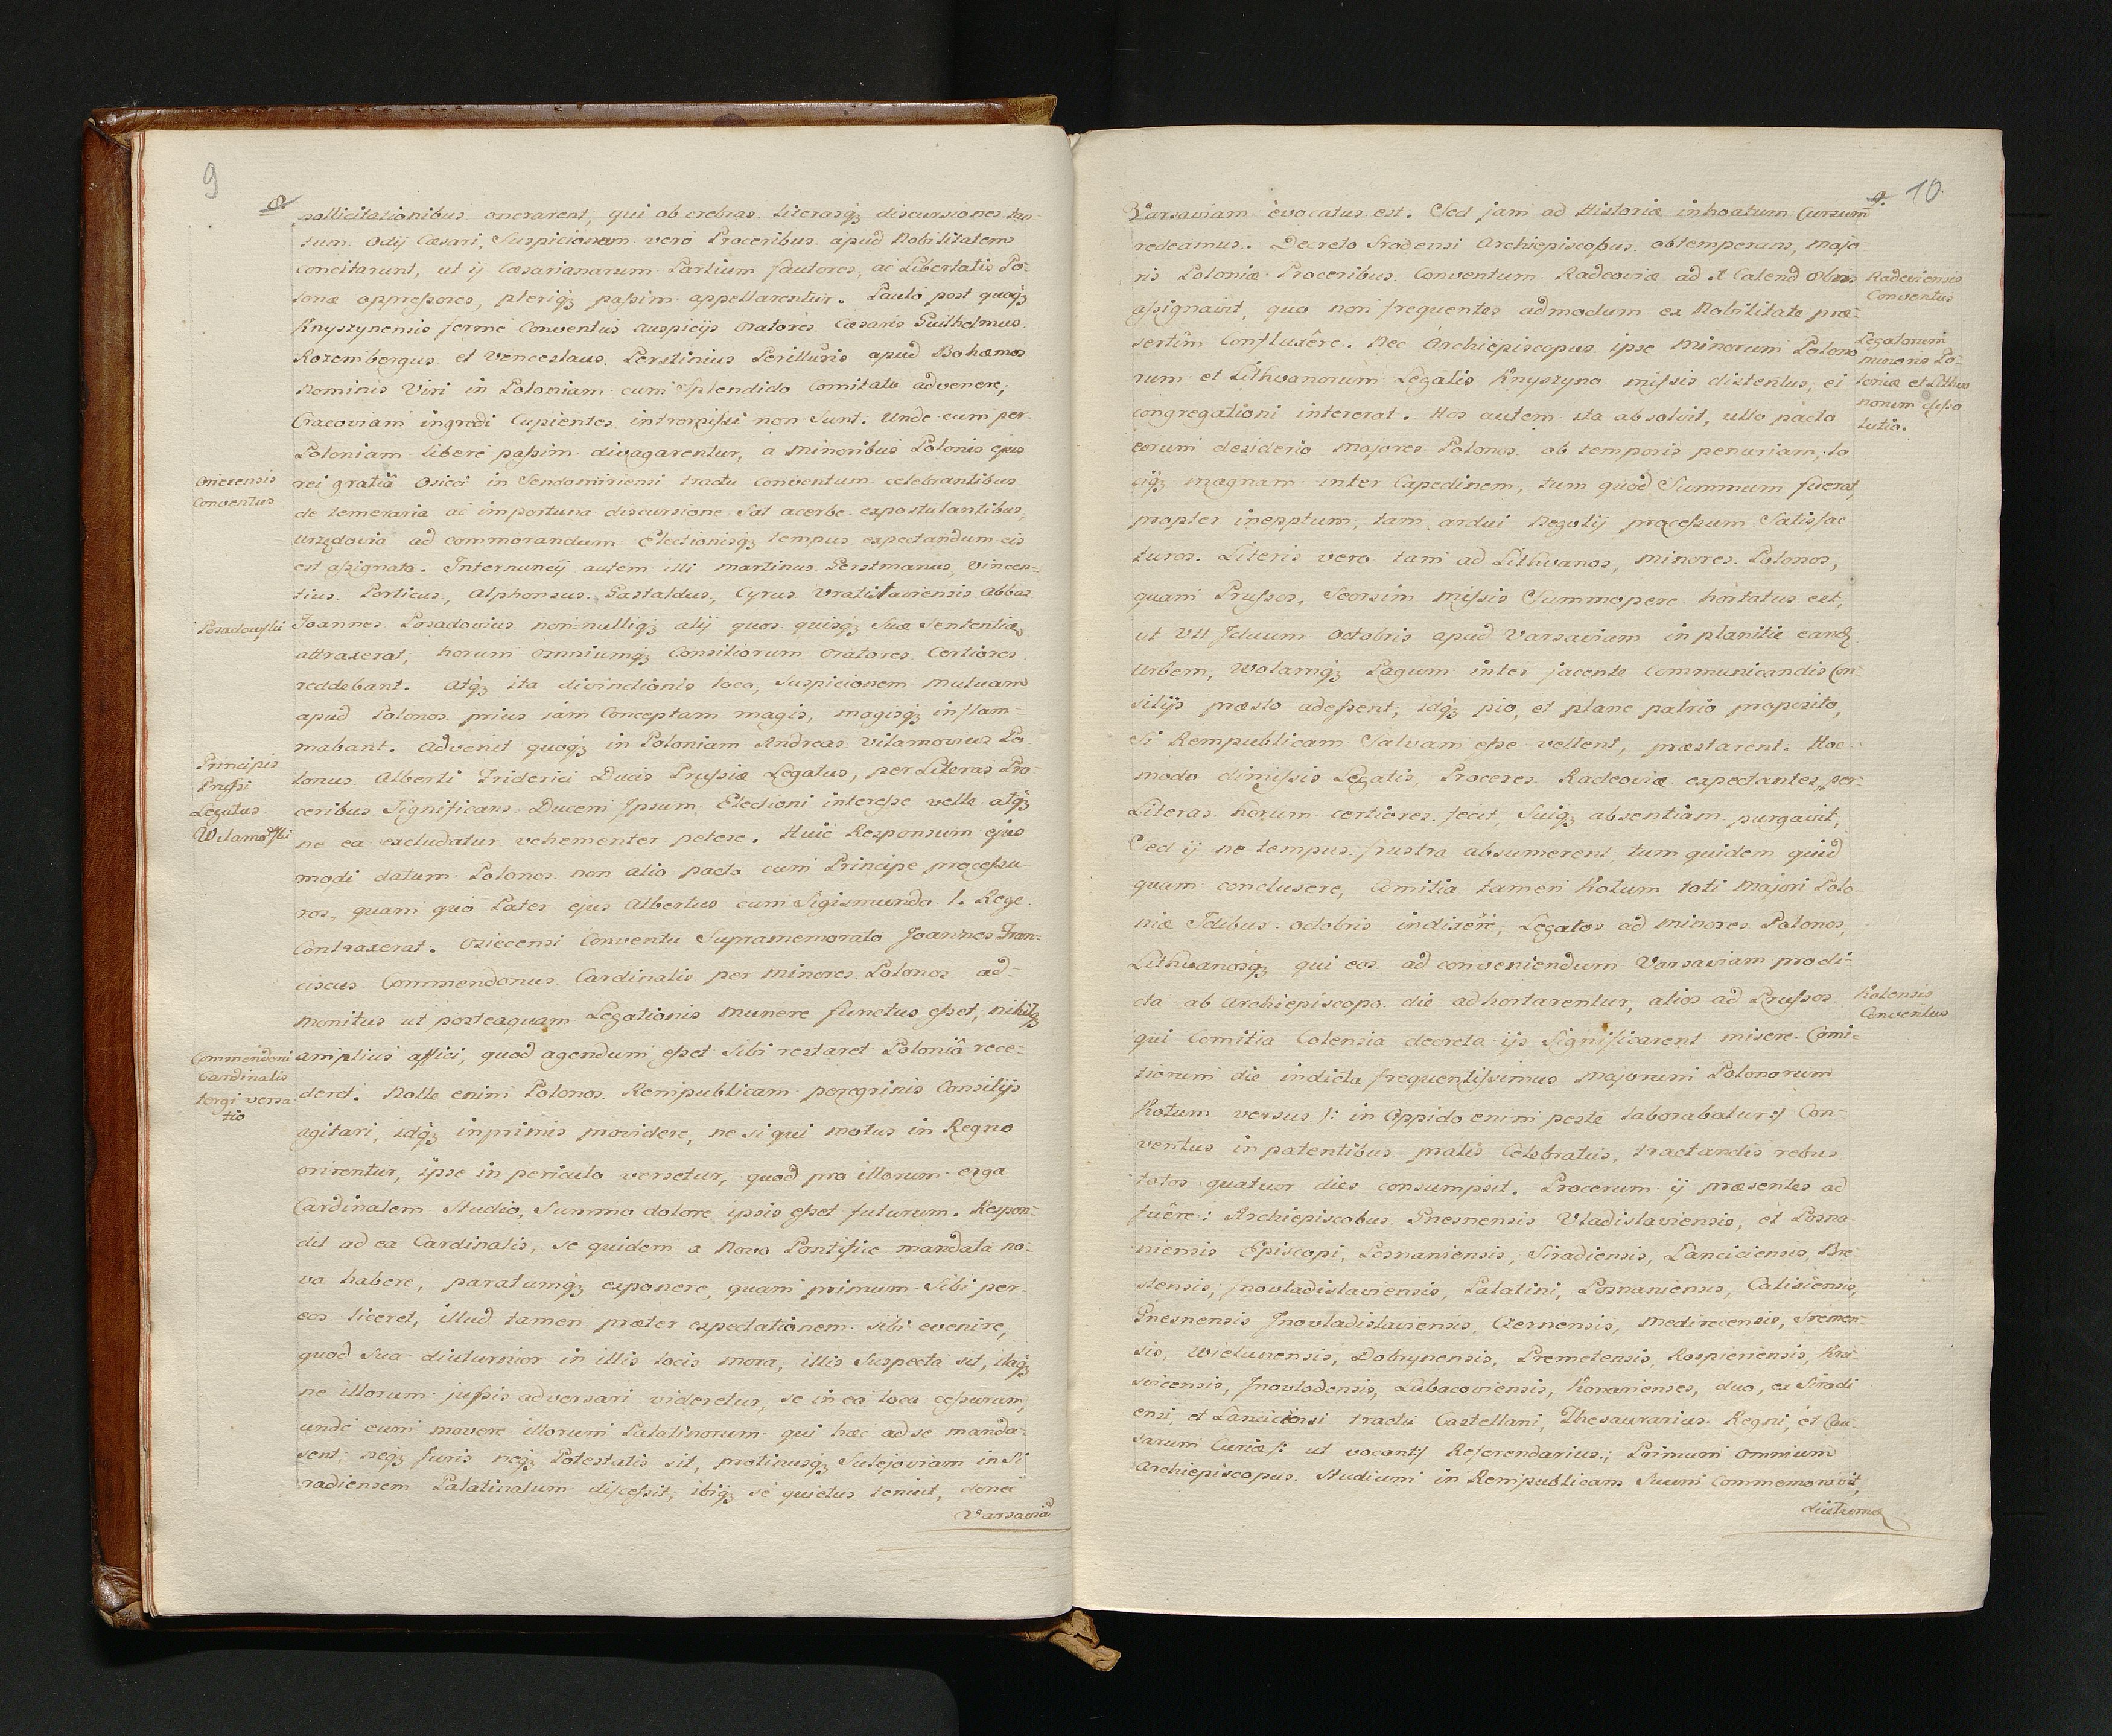 9
sollicitationibus onerarent, qui ob crebras literasq́ꝫ discursiones tan-
tum Odij Cæsari, Suspicionem vero Proceribus apud Nobilitatem
concitarunt, ut ij Cæsarianarum Partium fautores, ac Libertatis Po-
lonæ oppressores, pleriq́ꝫ passim appellarentur. Paulo post quoq́ꝫ
Knyszynensis ferme Conventus auspicijs Oratores Cæsaris Guilhelmus
Rozembergus et Venceslaus Perstinius Perillustris apud Bohæmos
Nominis Viri in Poloniam cum Splendido Comitatu advenere,
Cracoviam ingredi Cupientes intromissi non Sunt. Unde cum per
Poloniam libere passim divagarentur, a Minoribus Polonis ejus
Oriecensis
Conventus
rei gratiâ Osieci in Sendomiriensi tractu Conventum celebrantibus
de temeraria ac importuna discursione Sat acerbe expostulantibus,
Urzędovia ad commorandum Electionisq́ꝫ tempus expectandum eis
est assignata. Internuncij autem illi Martinus Gerstmanus, Vincen-
tius Porticus, Alphonsus Gastaldus, Cyrus Vratislaviensis Abbas
Posadowskii
Joannes Posadovius non-nulliq́ꝫ alij quos quisq́ꝫ Suæ Sententiæ
attraxerat, horum omniumq́ꝫ Consiliorum Oratores Certiores
reddebant. Atq́ꝫ ita divinctionis loco, Suspicionem mutuam
apud Polonos prius iam Conceptam magis, magisq́ꝫ inflam-
mabant. Advenit quoq́ꝫ in Poloniam Andreas Vilamovius Po
Principis
Prussi
Legatus
Wilamowskii
lonus Alberti Friderici Ducis Prussiæ Legatus, per Literas Pro-
ceribus Significans Ducem Ipsum Electioni interesse velle atq́ꝫ
ne ea excludatur vehementer petere. Huic Responsum ejus
modi datum Polonos non alio pacto cum Principe processu-
ros, quam quo Pater ejus Albertus cum Sigismundo I. Rege
Contraxerat. Osiecensi Conventu Supramemorato Joannes Fran-
ciscus Commendonus Cardinalis per Minores Polonos ad-
monitus ut posteaquam Legationis munere functus esset, nihilq́ꝫ
Commendoni
Cardinalis
tergi versa
tio
amplius affici, quod agendum esset Sibi restaret Poloniâ rece-
deret. Nolle enim Polonos Rempublicam peregrinis Consilijs
agitari, idq́ꝫ inprimis providere, ne si qui motus in Regno
orirentur, ipse in periculo versetur, quod pro illorum erga
Cardinalem Studio, Summo dolore ipsis esset futurum. Respon-
dit ad ea Cardinalis, se quidem a Novo Pontifice mandata no-
va habere, paratumq́ꝫ exponere, quam primum Sibi per
eos liceret, illud tamen præter expectationem sibi evenire,
quod Sua diuturnior in illis locis mora, illis Suspecta sit, itaq́ꝫ
ne illorum jussis adversari videretur, se in ea loca cessurum,
unde eum movere illorum Palatinorum qui hæc ad se manda-
sent, neq́ꝫ Juris neq́ꝫ Potestatis sit, protinusq́ꝫ Sulejoviam in Si
radiensem Palatinatum discessit, ibiq́ꝫ se quietus tenuit, donec
Varsaviã
10.
Varsaviam evocatus est. Sed jam ad Historiæ inhoatum Cursum
redeamus. Decreto Srodensi Archiepiscopus obtemperans, majo
ris Poloniæ Proceribus Conventum Radeoviæ ad X Calend Obris
Radeviensis
Conventus
assignavit, quo non frequentes admodum ex Nobilitate præ-
sertim Confluxêre. Nec Archiepiscopus ipse Minorum Polono
Legatorum
minoris Po-
loniæ et Lithua
norum expo
lutio.
rum et Lithvanorum Legatis Knyszyno missis distentus, ei
congregationi intererat. Hos autem ita absolvit, ullo pacto
eorum desiderio Majores Polonos ob temporis penuriam, lo
ciq́ꝫ magnam inter Capedinem, tum quod Summum fuerat,
propter ineptum, tam ardui Negotij processum Satisfac
turos. Literis vero tam ad Lithvanos, minores Polonos,
quam Prussos, Seorsim missis Summopere hortatus est,
ut VII Iduum Octobris apud Varsaviam in planitie eandꝫ
Urbem, Wolamq́ꝫ Pagum inter jacente Communicandis Con-
silijs præsto adessent, idq́ꝫ pio, et plane patrio proposito,
Si Rempublicam Salvam esse vellent, præstarent. Hoc
modo dimissis Legatis, Proceres Radeoviæ expectantes, per
Literas horum certiores fecit, Suiq́ꝫ absentiam purgavit,
Sed ij ne tempus frustra absumerent, tum quidem quid
quam conclusere, Comitia tamen Kolum toti Majori Polo
niæ Idibus Octobris indixêrê, Legatos ad Minores Polonos,
Lithvanosq́ꝫ qui eos ad conveniendum Varsaviam prodi-
cta ab Archiepiscopo die adhortarentur, alios ad Prussos
Kolensis
Conventus
qui Comitia Colensia decreta ijs Significarent misere. Comi-
tiorum die indicta frequentissimus Majorum Polonorum
Kolum versus /: in Oppido enim peste laborabatur :/ Con-
ventus in patentibus pratis Celebratus, tractandis rebus
totos quatuor dies consumpsit. Procerum ij præsentes ad
fuêre: Archiepiscobus Gnesnensis Vladislaviensis, et Posna
niensis Episcopi, Posnaniensis, Siradiensis, Lanciciensis, Bre-
stensis, Inovladislaviensis, Palatini, Posnaniensis, Calisiensis,
Gnesnensis Inovladislaviensis, Czernensis, Medirecensis, Sremen-
sis, Wielunensis, Dobrynensis, Premetensis, Rospieriensis, Kru-
svicensis, Inovlodensis, Lubacoviensis, Konarienses, duo, ex Siradi
ensi, et Lanciciensi tractu Castellani, Thesaurarius Regni, et Cau-
sarum Curiæ /: ut vocant :/ Referendarius.; Primum omnium
Archiepiscopus Studium in Rempublicam Suum Commemoravit,